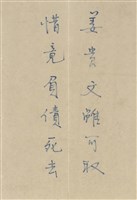 姜貴文雖可取
惜竟負債死去